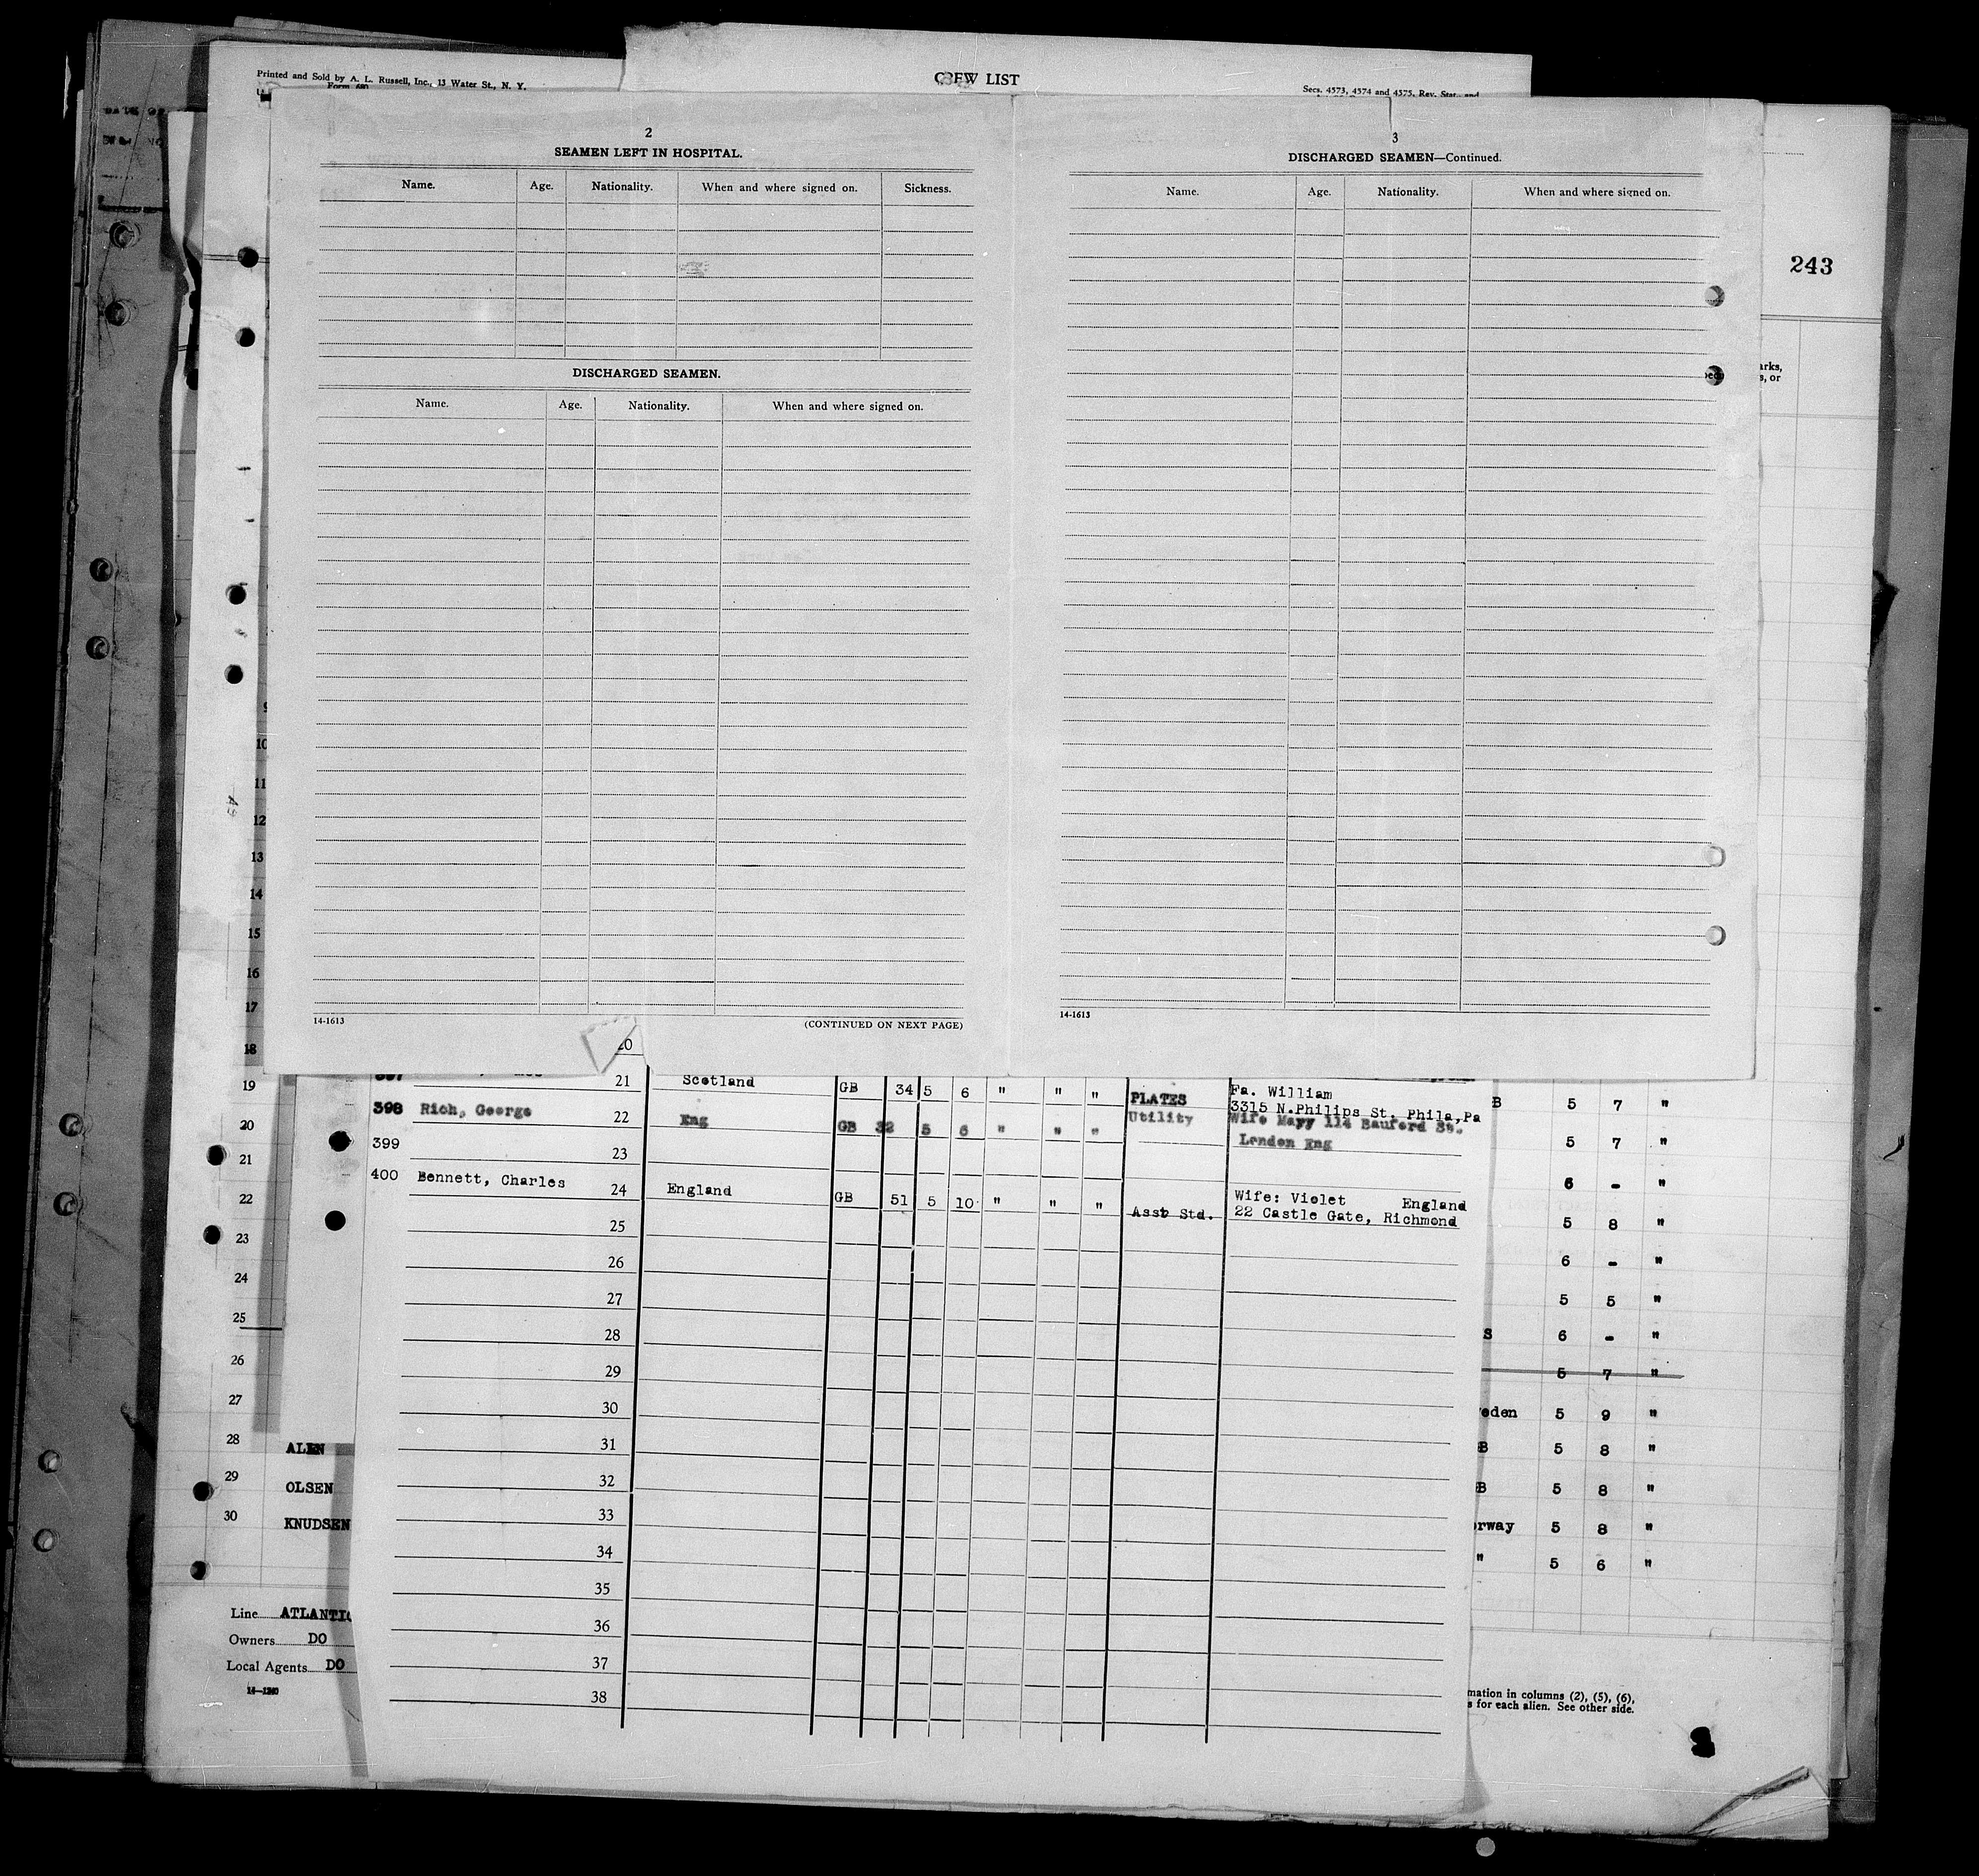 Printed and Sold by A. L. Russell, Inc., 13 Water St., N. Y.
Form 680
CREW LIST
Secs. 4573, 4574 and 4575, Rev. Stat., and
243
2
SEAMEN LEFT IN HOSPITAL.
Name. Age. Nationality. When and where signed on. Sickness.
DISCHARGED SEAMEN.
Name. Age. Nationality. When and where signed on.
14-1613 (CONTINUED ON NEXT PAGE)
3
DISCHARGED SEAMEN—Continued.
Name. Age. Nationality. When and where signed on.
14-1613
arks,
s, or
9
10
11
12
13
14
15
16
17
18
19
20
21
22
23
24
25
26
27
28 ALEN
29 OLSEN
30 KNUDSEN
Line ATLANTIC
Owners DO
Local Agents DO
14-1240
20
397 21 Scotland GB 34 5 6 " " " PLATES Fa. William
3315 N.Philips St. Phila,Pa
398 Rich, George 22 Eng GB 32 5 6 " " " Utility Wife Mayy 114 Bauford St.
London Eng
399 23
400 Bennett, Charles 24 England GB 51 5 10 " " " Asst Std. Wife: Violet England
22 Castle Gate, Richmond
25
26
27
28
29
30
31
32
33
34
35
36
37
38
B 5 7 "
5 7 "
6 - "
5 8 "
6 - "
5 5 "
S 6 - "
5 7 "
eden 5 9 "
B 5 8 "
B 5 8 "
orway 5 8 "
" 5 6 "
mation in columns (2), (5), (6),
s for each alien. See other side.